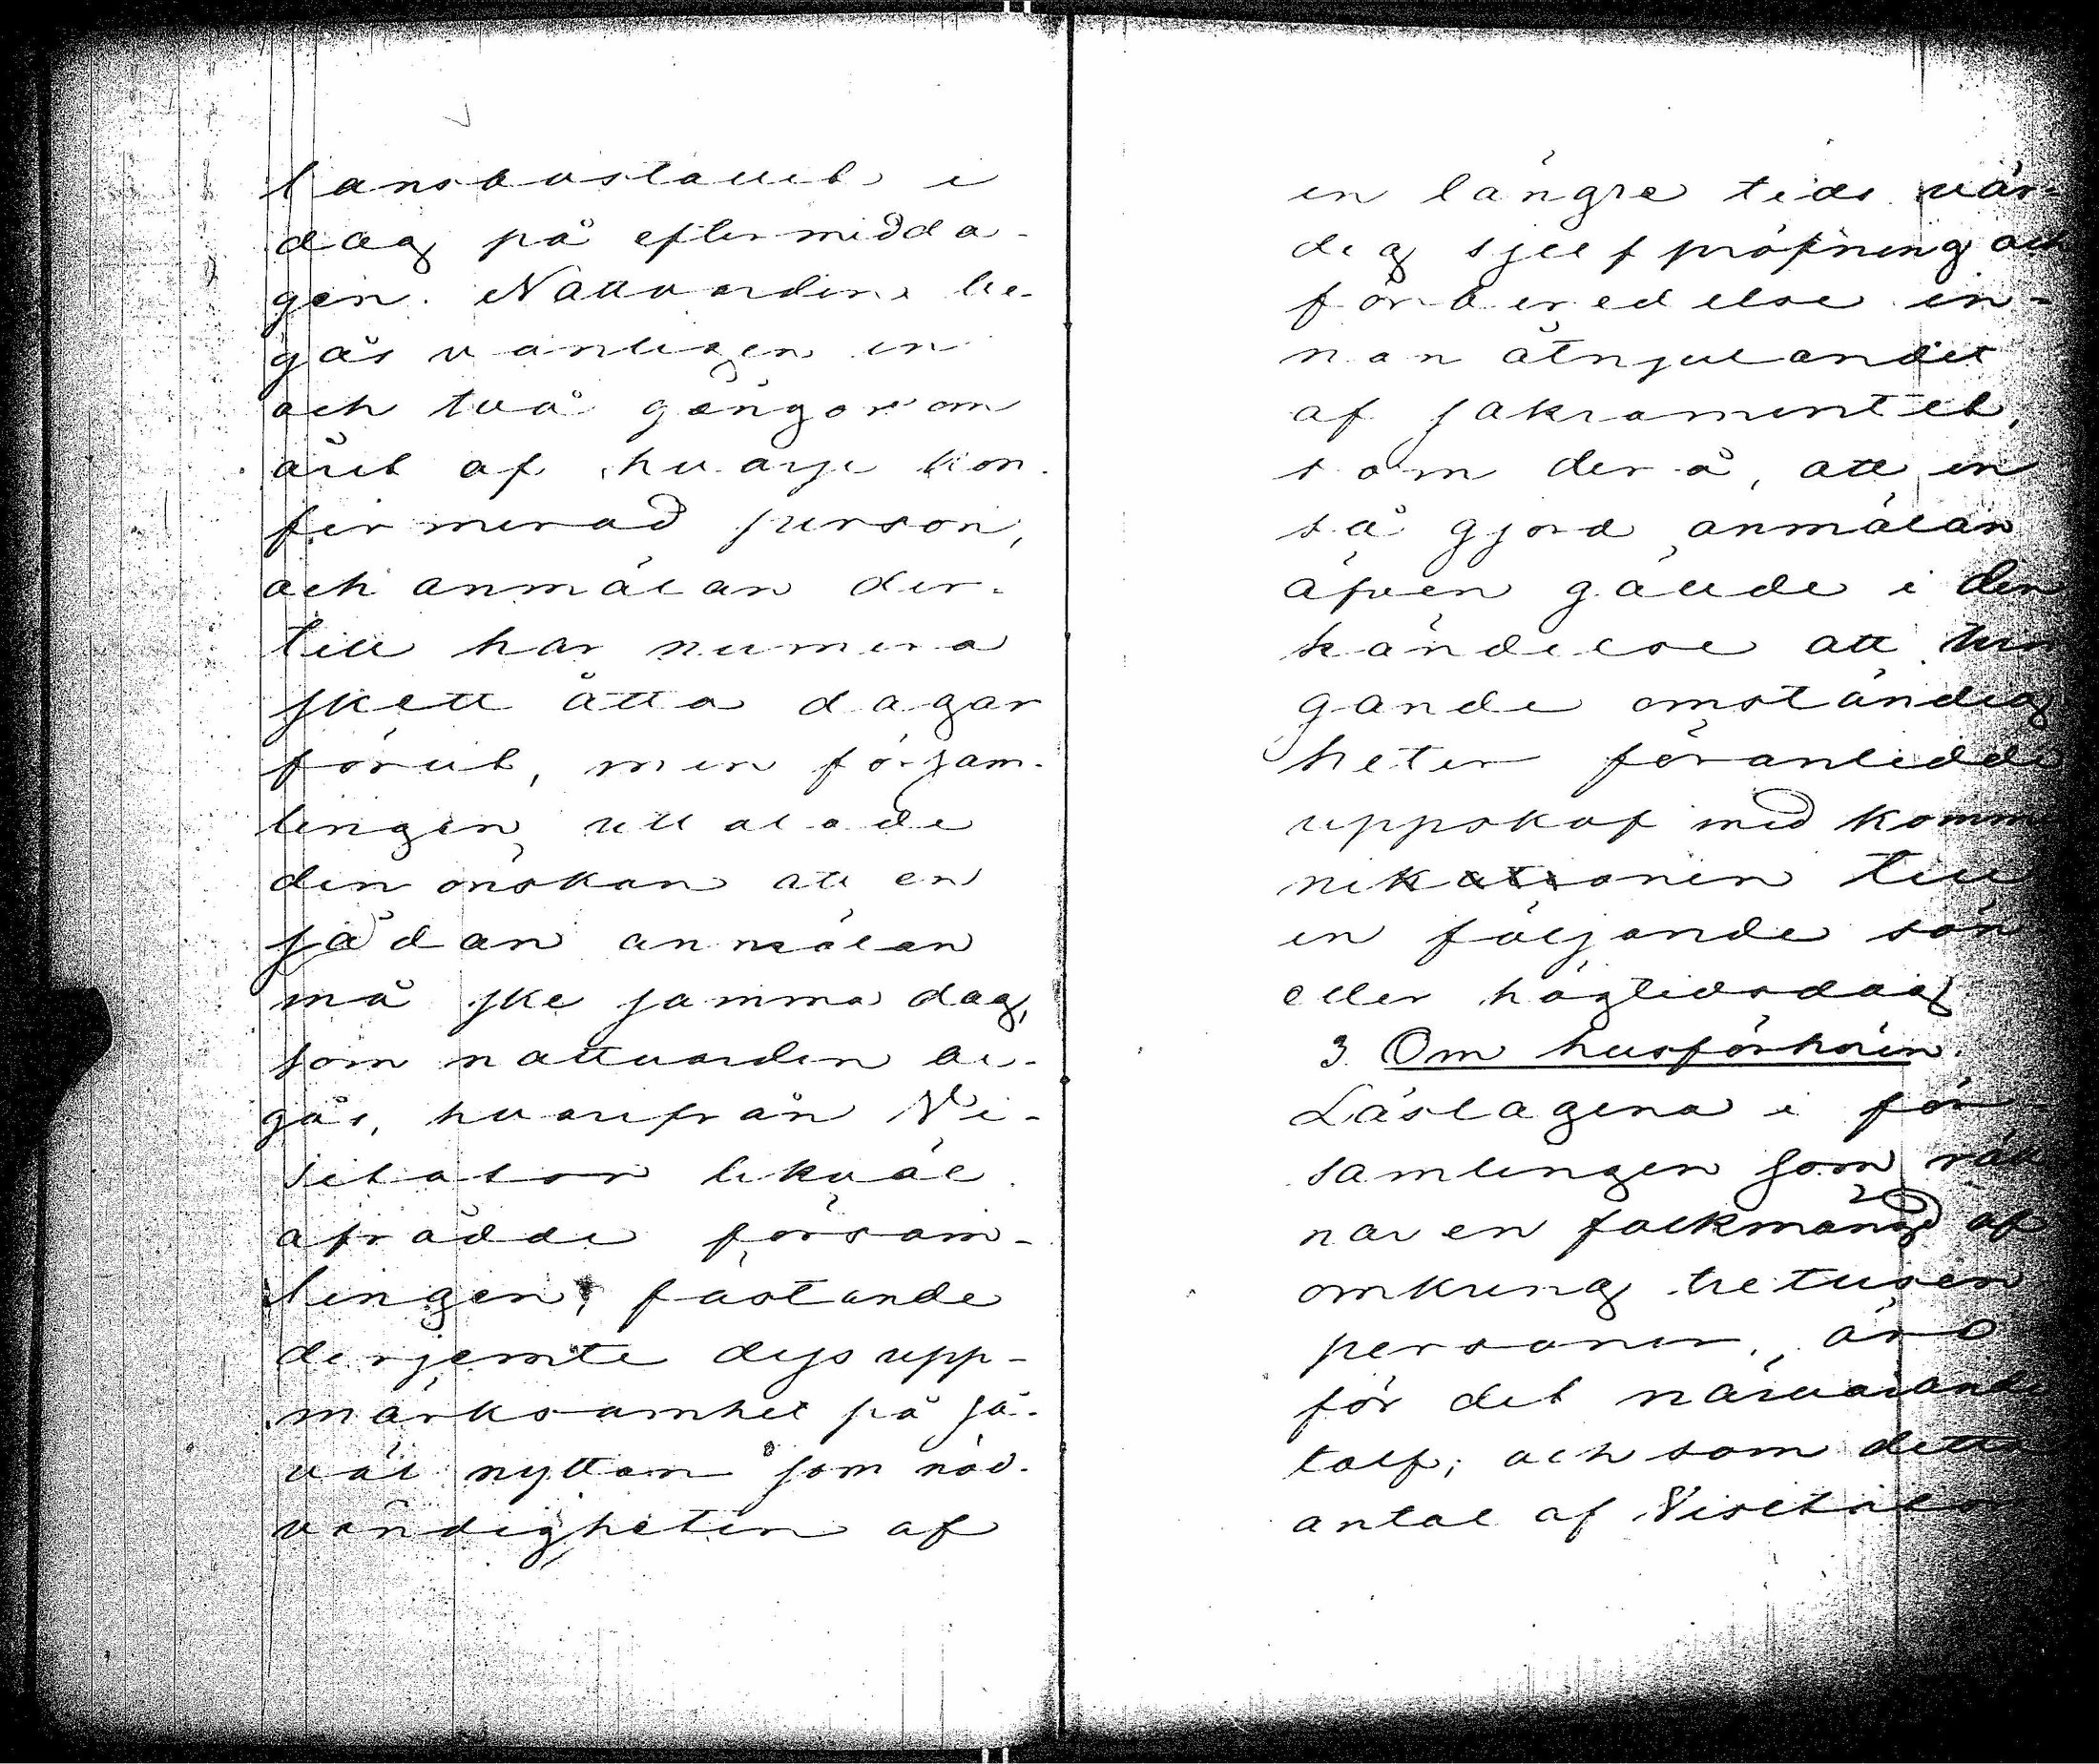 dag på eftermidda-
gen. Nattvarden be-
gås vanligen en
och två gånger om
året af hvarje kon-
firmerad person,
och anmälan der-
till har numera
skett åtta dagar
förut, men försam-
lingen uttalade
den önskan att en
sådan anmälan
må ske samma dag,
som nattvarden be-
gås, hvarifrån Vi-
sitator likväl
afrådde försam-
lingen, fästande
derjemte dess upp-
märksamhet på så-
väl nyttan som nöd-
vändigheten af
en längre tids vär-
dig sjelfpröfning och
förberedelse in-
nan åtnjutandet
af sakramentet,
som derå, att en
så gjord anmälan
äfven gällde i den
händelse att tvin
gande omständig
heter föranledde
uppskof med kommu
nikationen till
en följande sön
eller högtidsdag.
3. Om husförhören.
Läslagena i för-
samlingen som räk
nar en folkmängd af
omkring tretusen
personer, äro
för det närvarande
tolf; och som detta
antal af Visitator